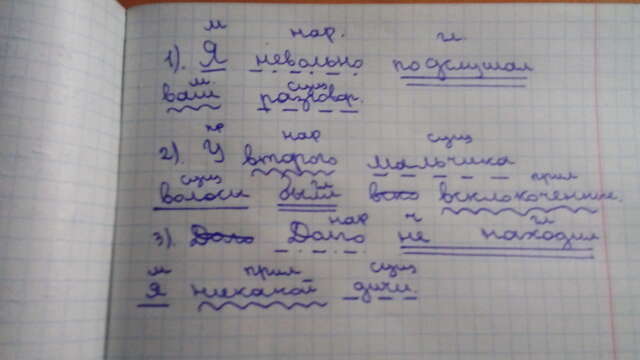 м нар. гл.
1). Я невольно подслушал
м. сущ
ваш разговор.
пр нар сущ
2). У второго мальчика
сущ гл прил
волосы были вско всклокоченные.
нар ч гл
3). Доло Долго не находил
м прил сущ
я никакой дичи.